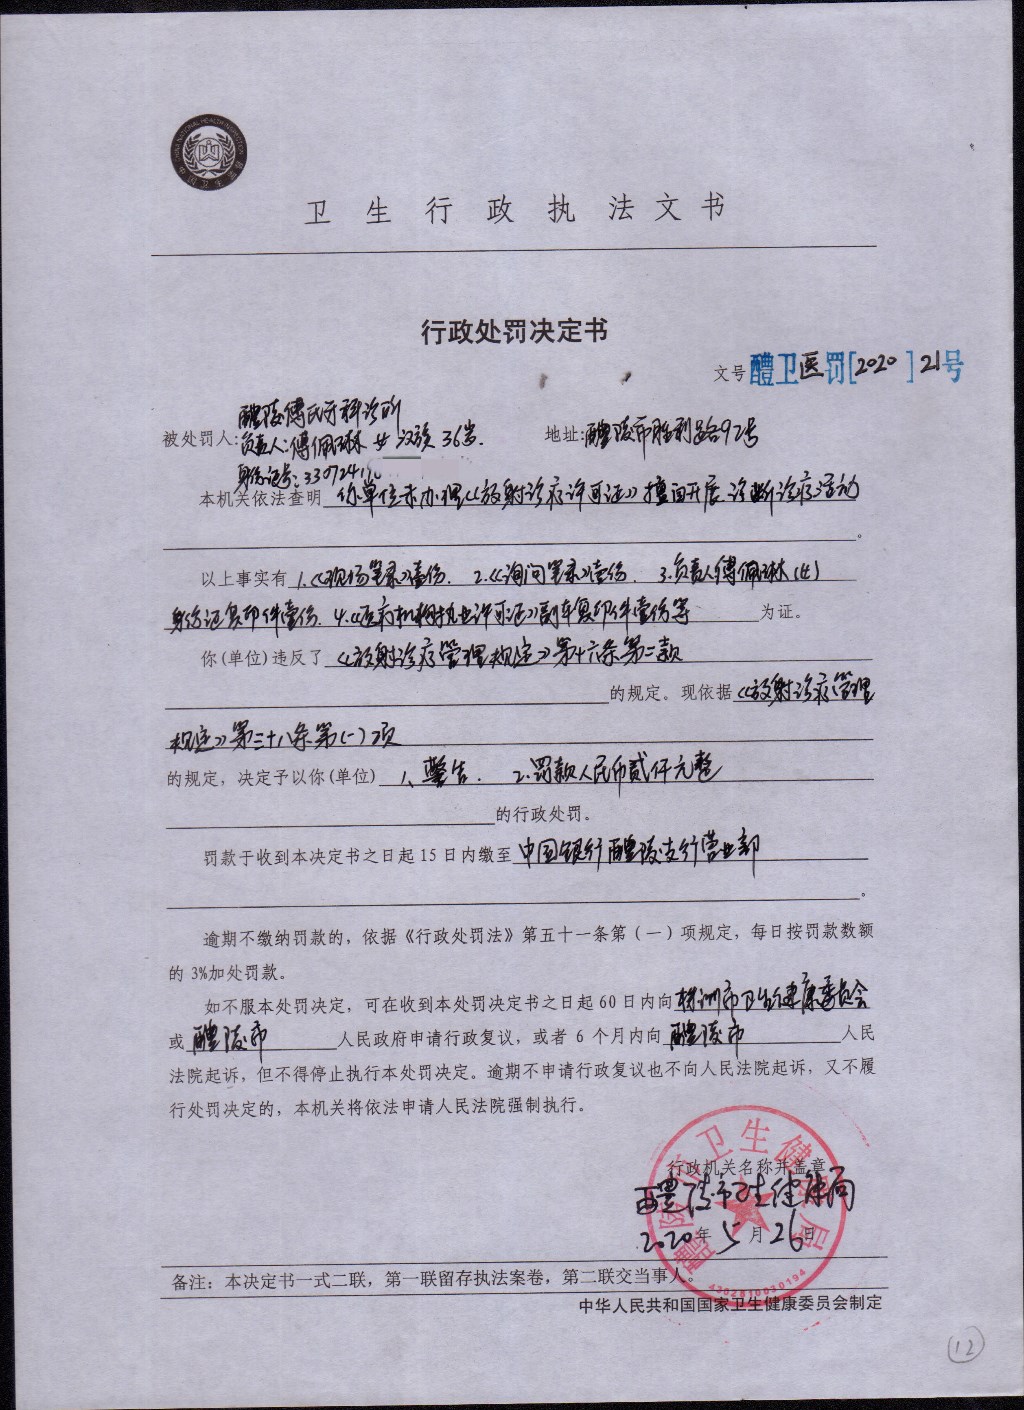 卫生行政执法文书
行政处罚决定书
文号 醴卫医罚[2020]21号
醴陵傅氏牙科诊所
被处罚人:负责人:傅佩琳 女 汉族 36岁. 地址:醴陵市胜利路92号
身份证号:3307241
本机关依法查明 你单位未办理《放射诊疗许可证》擅自开展诊断诊疗活动
。
以上事实有 1.《现场笔录》壹份. 2.《询问笔录》壹份. 3.负责人傅佩琳(女)
身份证复印件壹份. 4.《医疗机构执业许可证》副本复印件壹份等 为证。
你(单位)违反了 《放射诊疗管理规定》第十六条第二款
的规定。现依据《放射诊疗管理
规定》第三十八条第(一)项
的规定，决定予以你(单位) 1、警告. 2.罚款人民币贰仟元整
的行政处罚。
罚款于收到本决定书之日起15日内缴至 中国银行醴陵支行营业部
。
逾期不缴纳罚款的，依据《行政处罚法》第五十一条第（一）项规定，每日按罚款数额
的3%加处罚款。
如不服本处罚决定，可在收到本处罚决定书之日起60日内向 株洲市卫生健康委员会
或 醴陵市 人民政府申请行政复议，或者6个月内向 醴陵市 人民
法院起诉，但不得停止执行本处罚决定。逾期不申请行政复议也不向人民法院起诉，又不履
行处罚决定的，本机关将依法申请人民法院强制执行。
行政机关名称并盖章
醴陵市卫生健康局
2020年5月26日
4302810030194
备注：本决定书一式二联，第一联留存执法案卷，第二联交当事人。
中华人民共和国国家卫生健康委员会制定
12